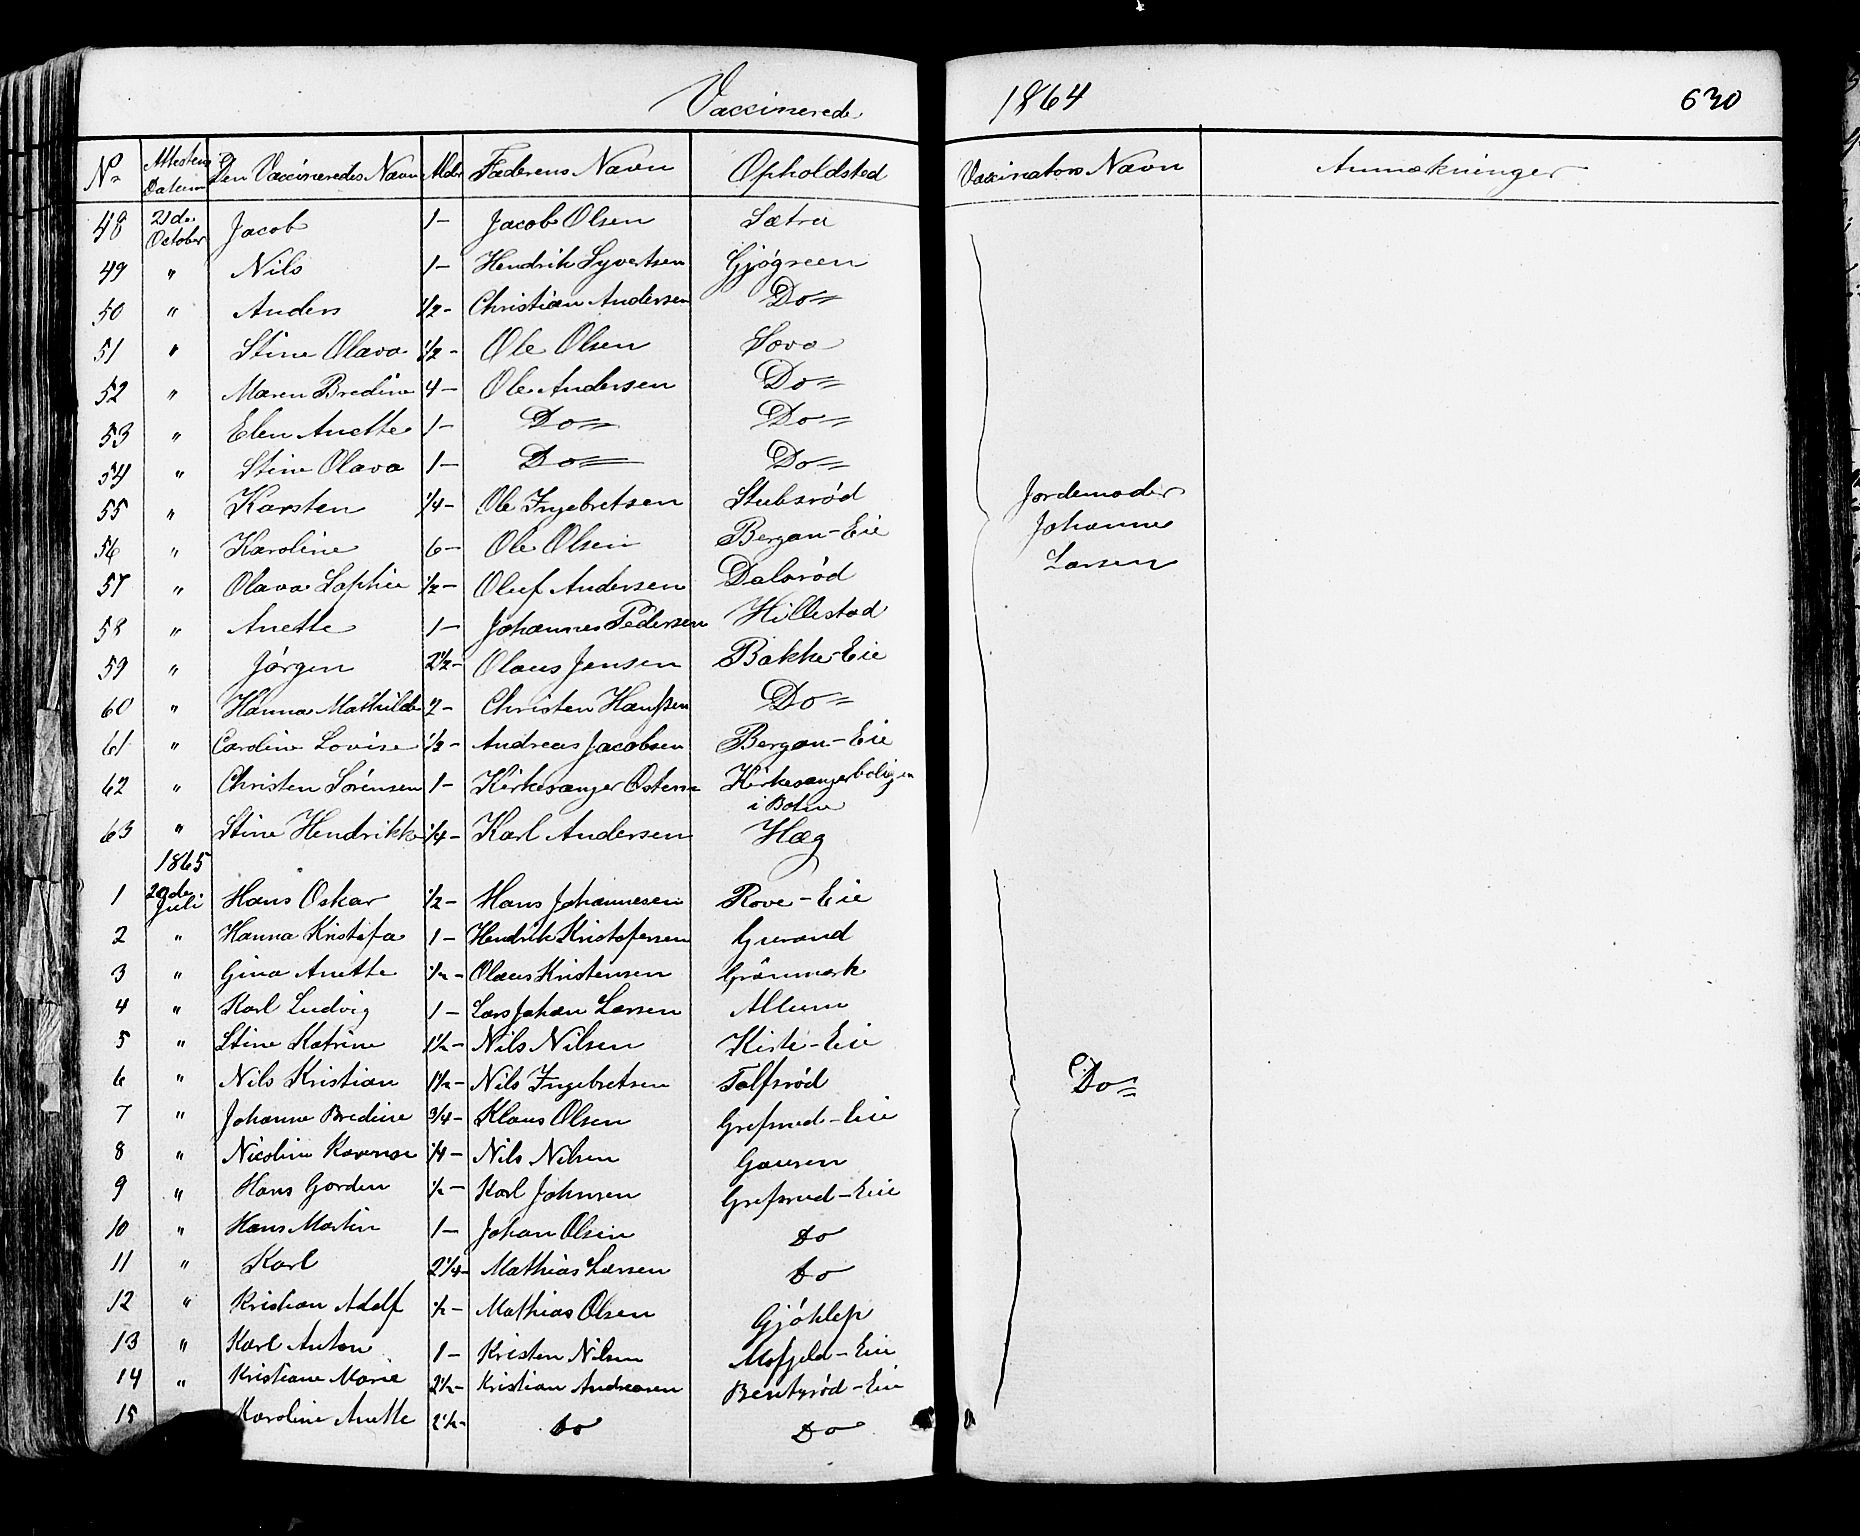 Vaccinerede 1864 630
No Attestens Datum Den Vaccineredes Navn Alder Faderens Navn Opholdsted Vaccinators Navn Anmærkninger
48 21de October Jacob 1– Jacob Olsen Sætra
49 " Nils 1– Hendrik Syvertsen Gjøgreen
50 " Anders 1/2– Christian Andersen Do=
51 " Stine Olava 1/2– Ole Olsen
52 " Maren Bredine 4– Ole Andersen Do=
53 " Elen Anette 1– Do= Do=
54 " Stine Olava 1– Do= Do=
55 " Karsten 1/4– Ole Ingebretsen Stubsrød Jordemoder
56 " Karoline 6– Ole Olsen Bergan–Eie Johanne
57 " Olava Sophie 1/2– Oluf Andersen Dalsrød Larsen
58 " Anette 1– Johannes Pedersen Hillestad
59 " Jørgen 2 1/2– Olaus Jensen Bakke–Eie
60 " Hanna Mathilde 2– Christen Hanssen Do=
61 " Caroline Lovise 1/2– Andreas Jacobsen Bergan–Eie
62 " Christen Sørensen 1– Kirkesanger Kirkesangerboligen
i Botne
63 " Stine Hendrikke 1/4– Karl Andersen Hæg
1865
1 20de Juli Hans Oskar 1/2– Hans Johannesen Rove–Eie
2 " Hanna Kristofa 1– Hendrik Kristofersen
3 " Gina Anette 1/2– Olaus Kristensen Grönmark
4 " Karl Ludvig 1– Lars Johan Larsen Allum
5 " Stine Katrine 1 1/2– Nils Nilsen Kiste–Eie
6 " Nils Kristian 1 1/2– Nils Ingebretsen Tolfsrød Do=
7 " Johanne Bredine 3/4– Klaus Olsen Grefsrud–Eie
8 " Nicoline 1/4– Nils Nilsen Gausen
9 " Hans Gorden 1/2– Karl Johnsen Grefsrud–Eie
10 " Hans Martin 1– Johan Olsen Do
11 " Karl 2 1/4– Mathias Larsen Do
12 " Kristian Adolf 1/2– Mathias Olsen Gjøklep
13 " Karl Anton 1– Kristen Nilsen Mofjeld–Eie
14 " Kristiane Marie 2 1/2– Kristian Andreasen Bentsrød–Eie
15 Karoline Anette 2 1/2– Do Do